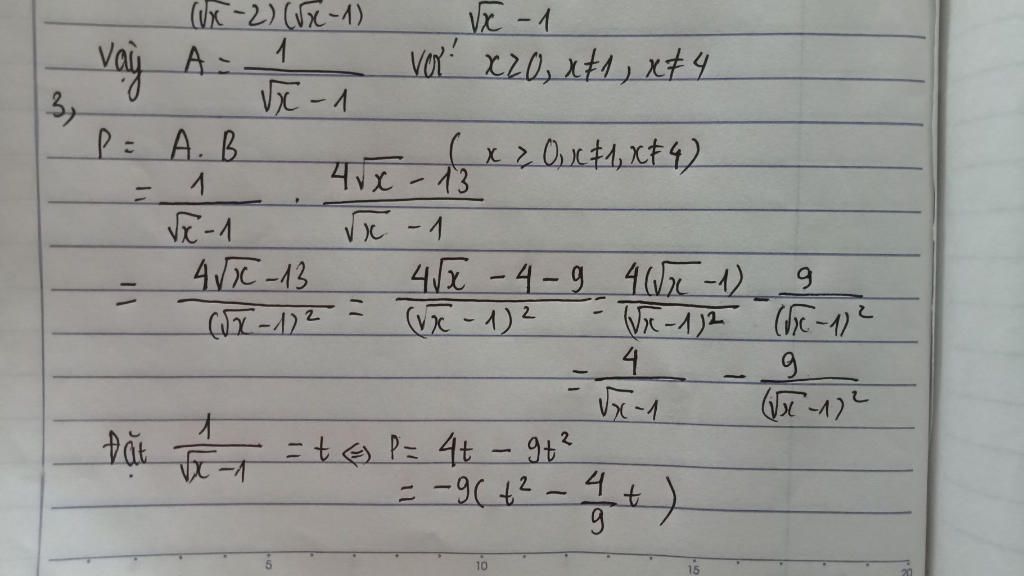 (√x - 2)(√x - 1)   √x - 1
Vậy A = 1/(√x - 1) với x ≥ 0, x ≠ 1, x ≠ 4
3,
P = A . B ( x ≥ 0, x ≠ 1, x ≠ 4)
= 1/(√x - 1) . (4√x - 13)/(√x - 1)
= (4√x - 13)/(√x - 1)² = (4√x - 4 - 9)/(√x - 1)² = 4(√x - 1)/(√x - 1)² - 9/(√x - 1)²
= 4/(√x - 1) - 9/(√x - 1)²
Đặt 1/(√x - 1) = t ⇔ P = 4t - 9t²
= -9( t² - 4/9 t )
5 10 15 20